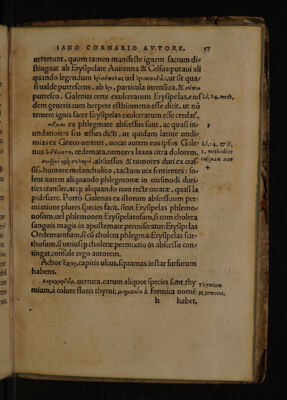 IANO CORNARIO AVTORE. 57
uerterunt, quum tamen manifeste ignem sacrum di
stinguat ab Erysipelate Auicenna & Celsus: putaui ali
quando legendum uel ut sit qua
si ualde putrescens, ab particula intensiua, &
putresco. Galenus certe exulcerarum Erysipelas, eius Li. 14. meth.
dem generis cum herpete esthiomeno esse dicit, ut nō
temere ignis sacer Erysipelas exulceratum esse credat̃.
ex phlegmate abscessus sunt, ac quasi in-
undationes seu æstus dicti, ut quidam latine undi-
mias ex Græco uerterit, uocat autem eos ipsos Gale- Li, 14. & II,
nus œdemata, tumores laxos citra dolorem. 2. methodice
abscessus & tumores duri ex cras
sis. humore melancholico, tactum uix sentientes: so-
lent autem aliquando phlegmonæ in eiusmodi duri-
ties transire, atq; aliquando non recte curatæ, quasi la
pidescere. Porrò Galenus ex istorum abscessuum per-
mixtione plures species facit, sicut Erysipelas phlemo-
nosum, uel phlemonen Erysipelatosam, si cum cholera
sanguis magis in apostemate permisceatur: Erysipelas
Oedematosum, si cū cholera phlegma: Erysipelas scir-
rhosum, si utriusq; choleræ permixtio in abscessu con-
tingat, consule ergo autorem.
Achor ἄχωρ, capitis ulcus, squamas instar furfurum
habens.
uerruca. earum aliquot species sunt, thy Thymium
mium, à colore floris thymi: à formica nomē Myrmecia.
h habet,